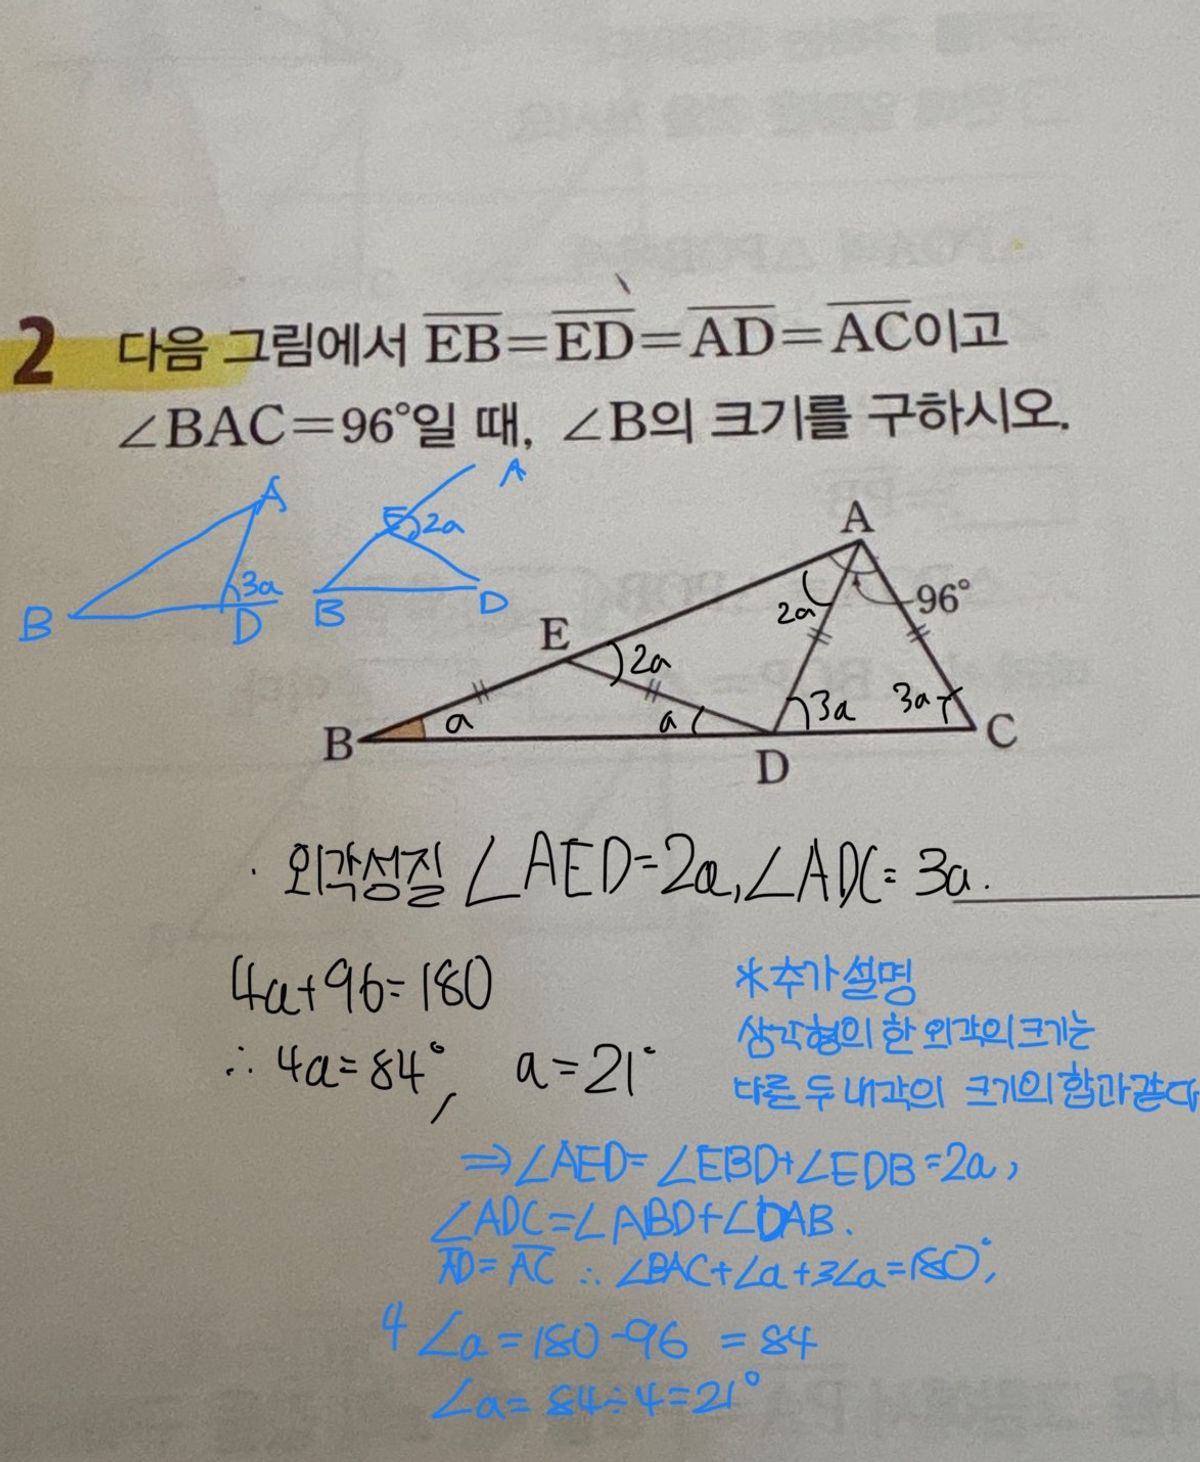 2 다음 그림에서 EB=ED=AD=AC이고
∠BAC=96°일 때, ∠B의 크기를 구하시오.
A
3a
B
D
A
E
2a
B
D
A
96°
2a
E
2a
3a
3a
B
a
a
C
D
· 외각성질 ∠AED=2a, ∠ADC=3a.
4a+96=180
∴ 4a=84°, a=21°
*추가설명
삼각형의 한 외각의 크기는
다른 두 내각의 크기의 합과 같다
⇒∠AED=∠EBD+∠EDB=2a,
∠ADC=∠ABD+∠DAB.
AD=AC ∴ ∠BAC+∠a+3∠a=180°,
4∠a=180-96 =84
∠a=84÷4=21°